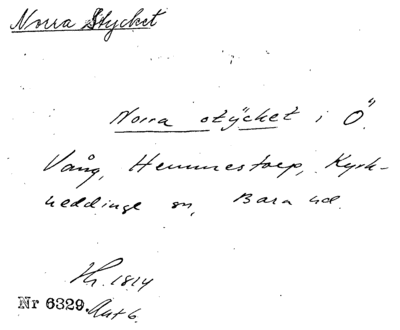 Norra Stycket
Norra stycket i Ö.
Vång, Hemmestorp, Kyrk-
heddinge sn, Bara hd.
Hr. 1814
Nr 6329. Akt 6.